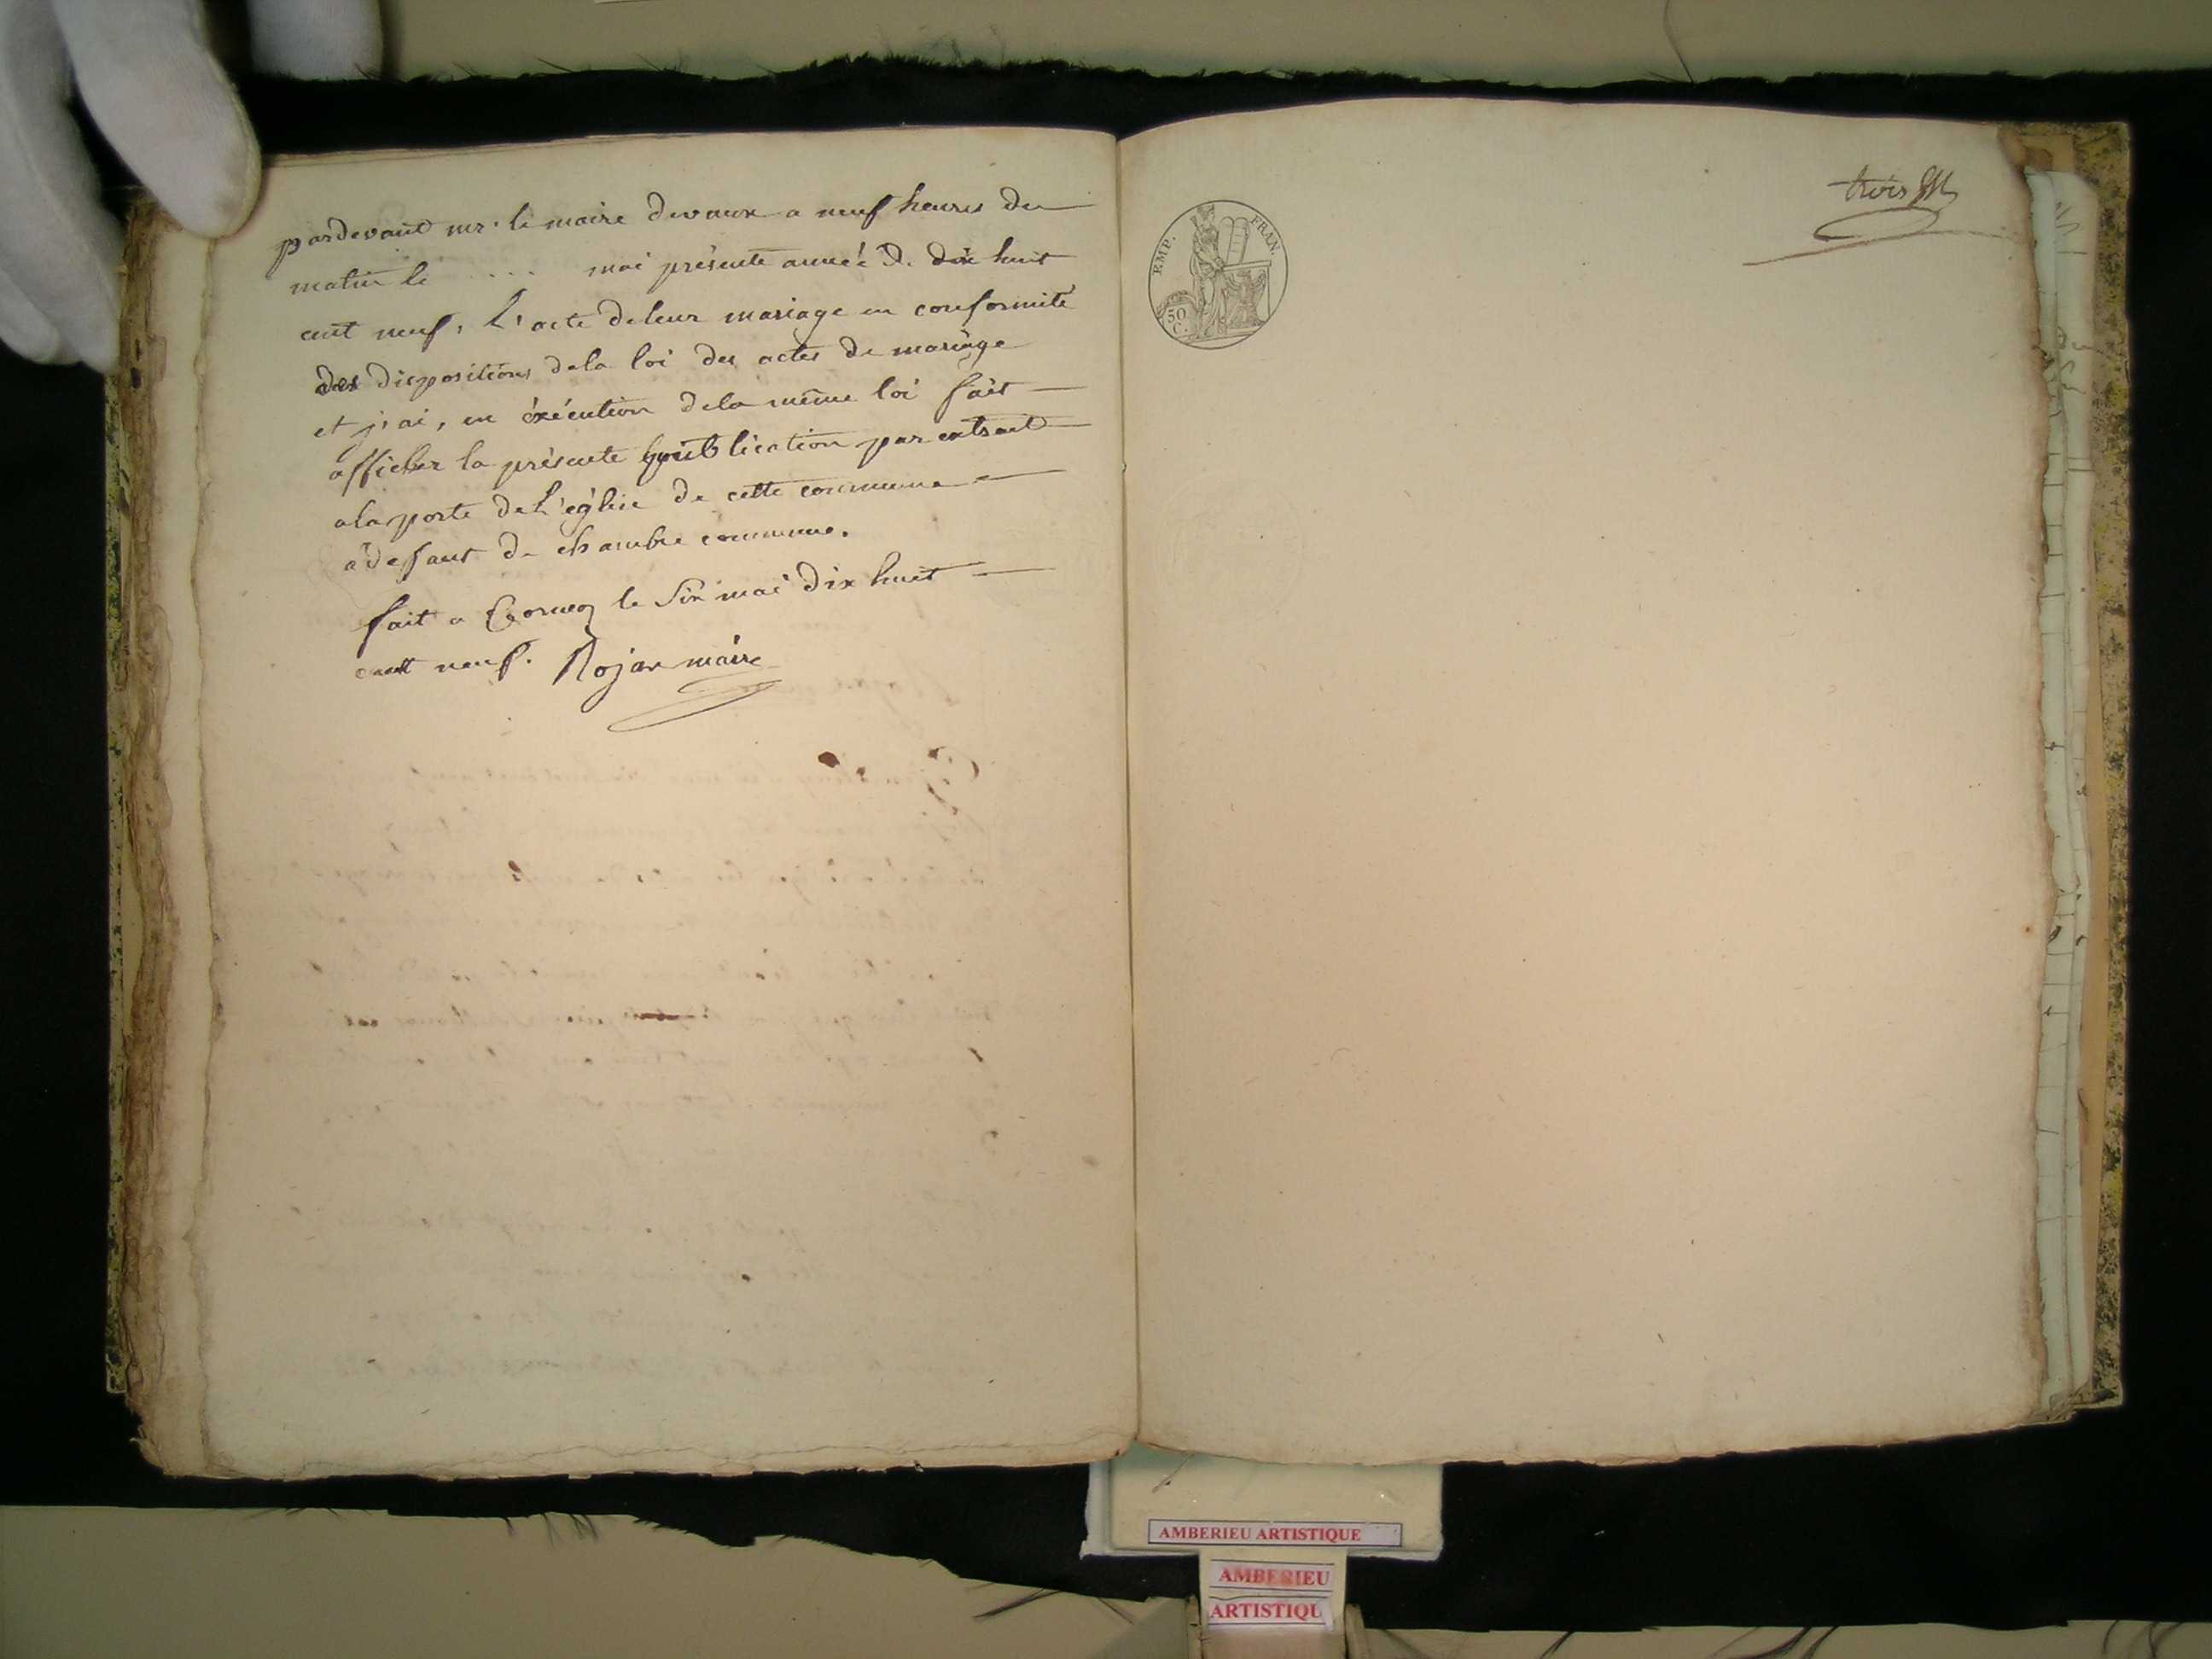 pardevant mr. le maire devaux a neuf heures du
matin le .... mai présente année de dix huit
cent neuf, L'acte de leur mariage en conformité
des dispositions de la loi des actes de mariage
et j'ai, en éxécution de la même loi fait
afficher la présente publication par extrait
a la porte de L'église de cette commune
a deffaut de chambre commune.
fait a le six mai dix huit
cent neuf. Rojan maire
trois
EMP. FRAN.
50
C.
AMBERIEU ARTISTIQUE
AMBERIEU
ARTISTIQU